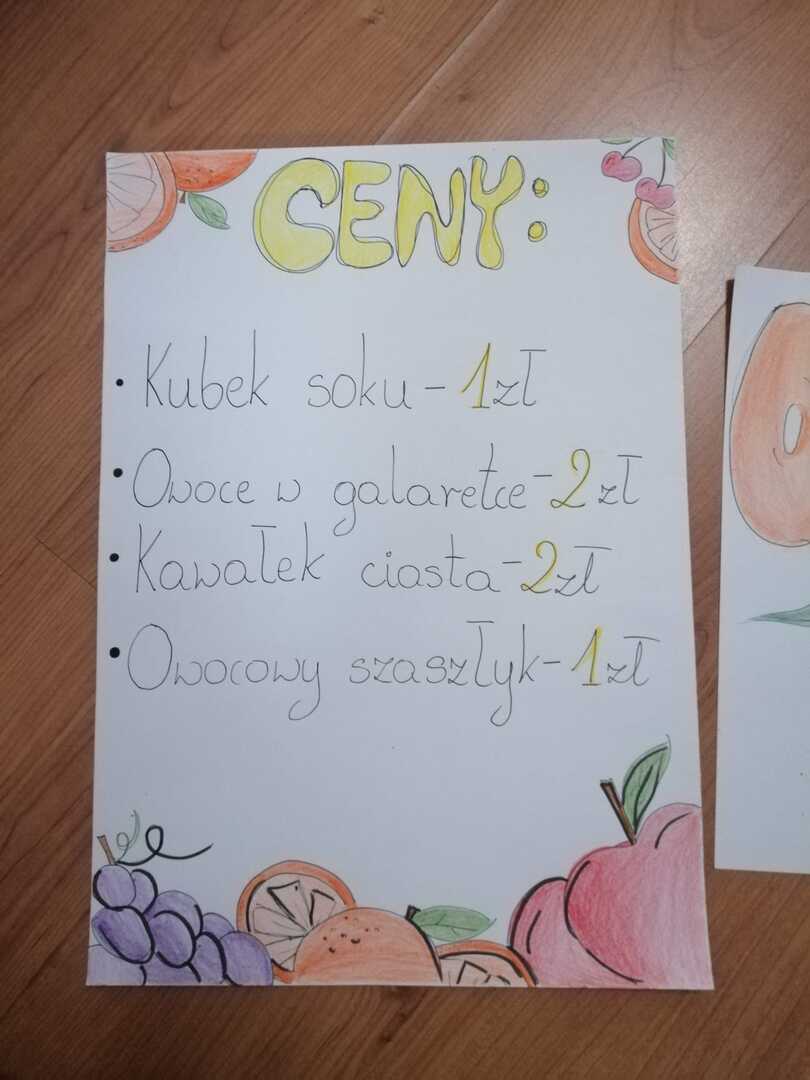 CENY:
• Kubek soku - 1zł
• Owoce w galaretce - 2zł
• Kawałek ciasta - 2zł
• Owocowy szaszłyk - 1zł